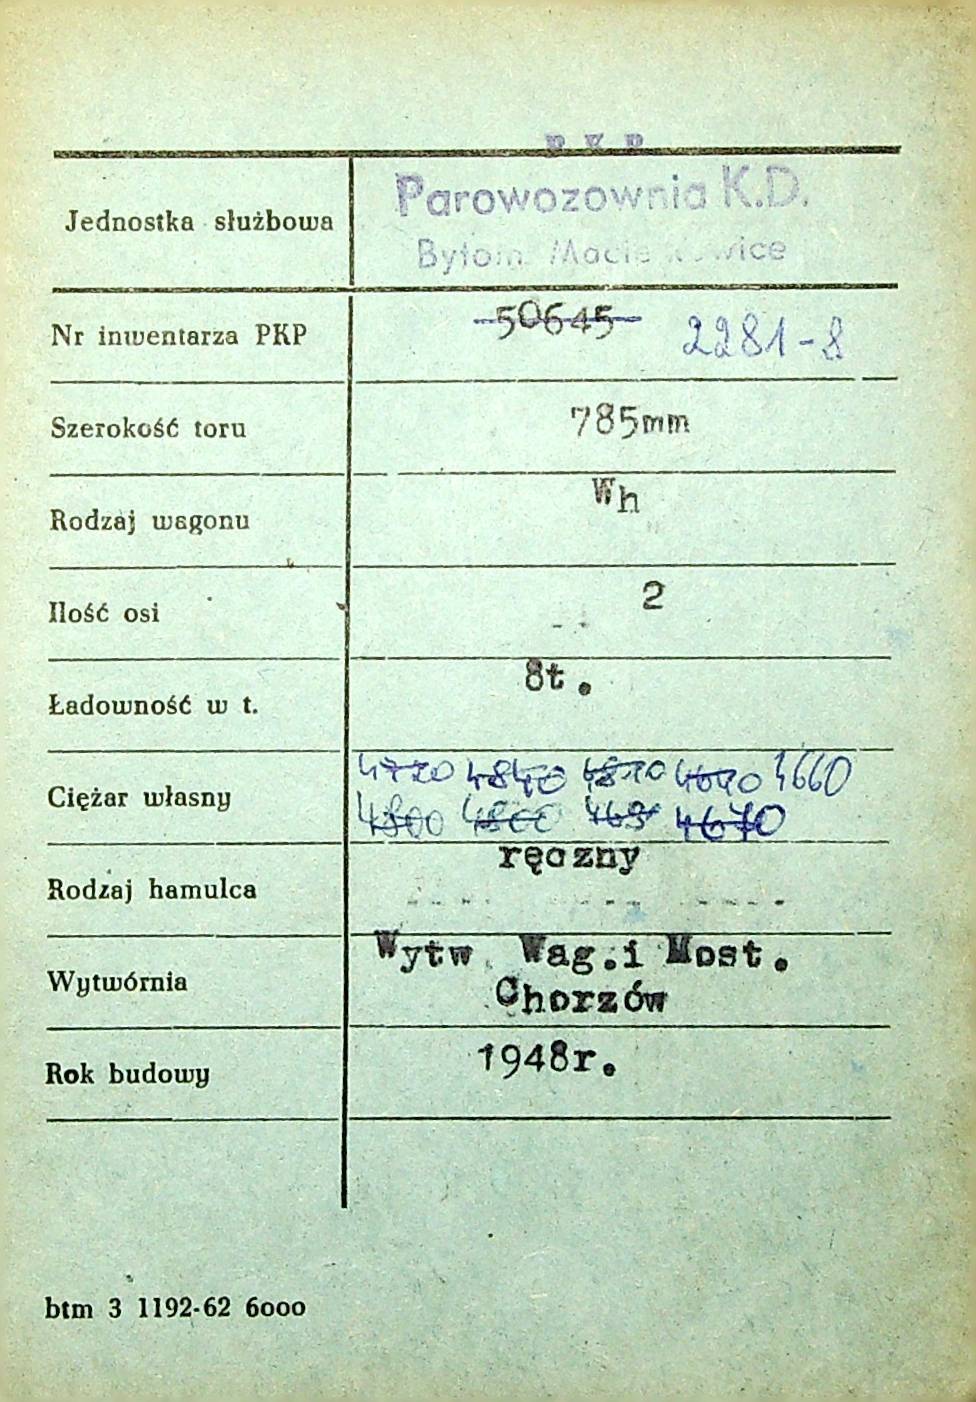 P K P
Jednostka służbowa Parowozownia K.D.
Bytom
Nr inwentarza PKP 50645 2281-8
Szerokość toru 785mm
Rodzaj wagonu Wh
Ilość osi 2
Ładowność w t. 8t.
Ciężar własny 4720 4840 4810 4640 4660
4800 4800 4670
Rodzaj hamulca ręczny
Wytwórnia Wytw. Wag.i Most.
Chorzów
Rok budowy 1948r.
btm 3 1192-62 6000